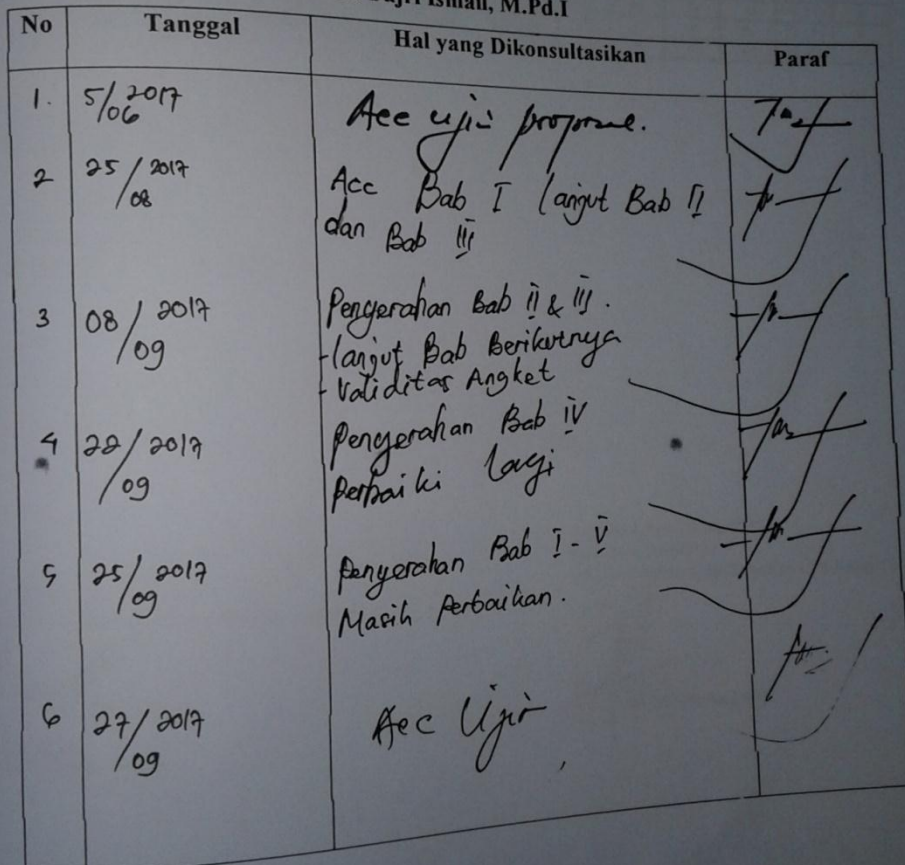 Ismail, M.Pd.I
No Tanggal Hal yang Dikonsultasikan Paraf
1. 5/06 2017 Acc ujin proposal.
2 25/08 2017 Acc Bab I lanjut Bab II
dan Bab III
3 08/09 2017 Pengerahan Bab II & III.
- lanjut Bab Berikutnya
- Validitas Angket
4 22/09 2017 Pengerahan Bab IV
Perbaiki lagi
5 25/09 2017 Penyerahan Bab I - V
Masih Perbaikan.
6 27/09 2017 Acc Ujin